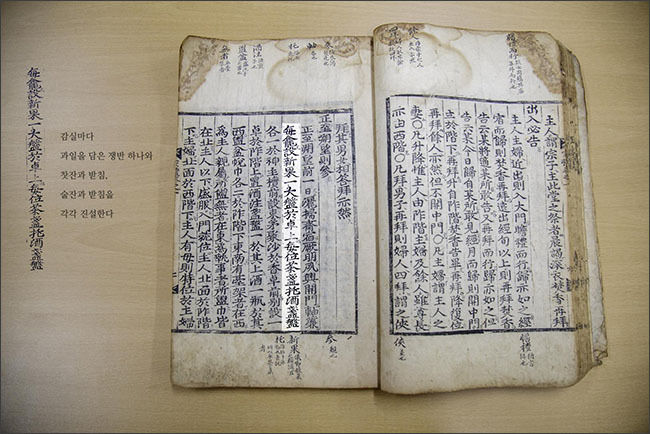 每龕設新果一大盤於卓上每位茶盞托酒盞盤
감실마다
과일을 담은 쟁반 하나와
찻잔과 받침,
술잔과 받침을
각각 진설한다
主人謂宗子主此堂之祭者晨謁深衣焚香再拜
出入必告
主人主婦近出則入大門瞻禮而行歸亦如之經
宿而歸則焚香再拜遠出經旬以上則再拜焚香
告云某將適某所敢告又再拜而行歸亦如之但
告云某今日歸自某所敢見經月而歸則開中門
立於階下再拜升自阼階焚香告畢再拜降復位
再拜餘人亦然但不開中門〇凡主婦謂主人之
妻〇凡升降惟主人由阼階主婦及餘人雖尊長
亦由西階〇凡拜男子再拜則婦人四拜謂之俠
拜其男女相答拜亦然
正至朔望則參
正至朔望前一日灑掃齊宿厥明夙興開門軸簾
每龕設新果一大盤於卓上每位茶盞托酒盞盤
各一於神主櫝前設束茅聚沙於香卓前別設一
卓於阼階上置酒注盞盤一於其上酒一瓶於其
西盥盆帨巾各二於阼階下東南有臺架者在西
爲主人親屬所盥無者在東爲執事者所盥巾皆
在北主人以下盛服入門就位主人北面於阼階
下主婦北面於西階下主人有母則特位於主婦